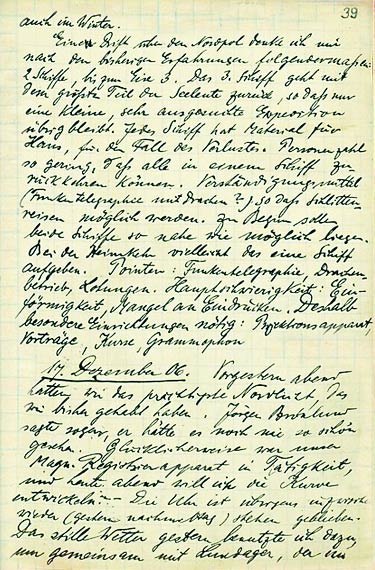 39
auch im Winter.
Eine Drift über den Nordpol denke ich mir
nach den bisherigen Erfahrungen folgendermaßen:
2 Schiffe, bis zum Eise 3. Das 3. Schiff geht mit
dem größte Teil der Seeleute zurück, so daß nur
eine kleine, sehr ausgesuchte Expedition
übrig bleibt. Jedes Schiff hat Material für
Haus, für den Fall des Verlustes. Personenzahl
so gering, daß alle in einem Schiff zu-
rückkehren können. Verständigungsmittel
(Funkentelegraphie mit Drachen?) so daß Schlitten-
reisen möglich werden. Zu Beginn sollen
beide Schiffe so nahe wie möglich liegen.
Bei der Heimkehr vielleicht das eine Schiff
aufgeben. Pointen: Funkentelegraphie, Drachen-
betrieb, Lotungen. Hauptschwierigkeit: Ein-
förmigkeit, Mangel an Eindrücken. Deshalb
besondere Einrichtungen nötig: Projektionsapparat,
Vorträge, Kurse, Grammophon
17. Dezember 06. Vorgestern abend
hatten wir das prächtigste Nordlicht, das
wir bisher gehabt haben. Jörgen Brönlund
sagte sogar, er hätte es noch nie so schön
gesehen. Glücklicherweise war unser
Magn. Registrierapparat in Tätigkeit,
und heute abend will ich die Kurve
entwickeln. – Die Uhr ist übrigens
wieder (gestern nachmittag) stehen geblieben.
Das stille Wetter gestern benutzte ich dazu,
um gemeinsam mit Lundager, der im